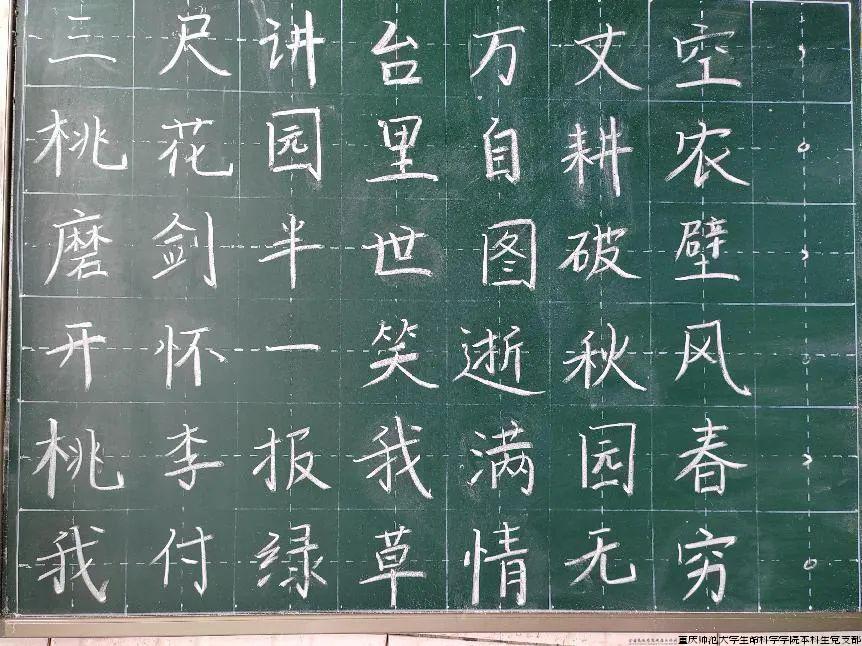 三尺讲台万丈空，
桃花园里自耕农。
磨剑半世图破壁，
开怀一笑逝秋风。
桃李报我满园春，
我付绿草情无穷。
重庆师范大学生命科学学院本科生党支部